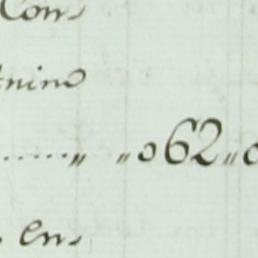 Con-
nino
......„ „062„0
en-